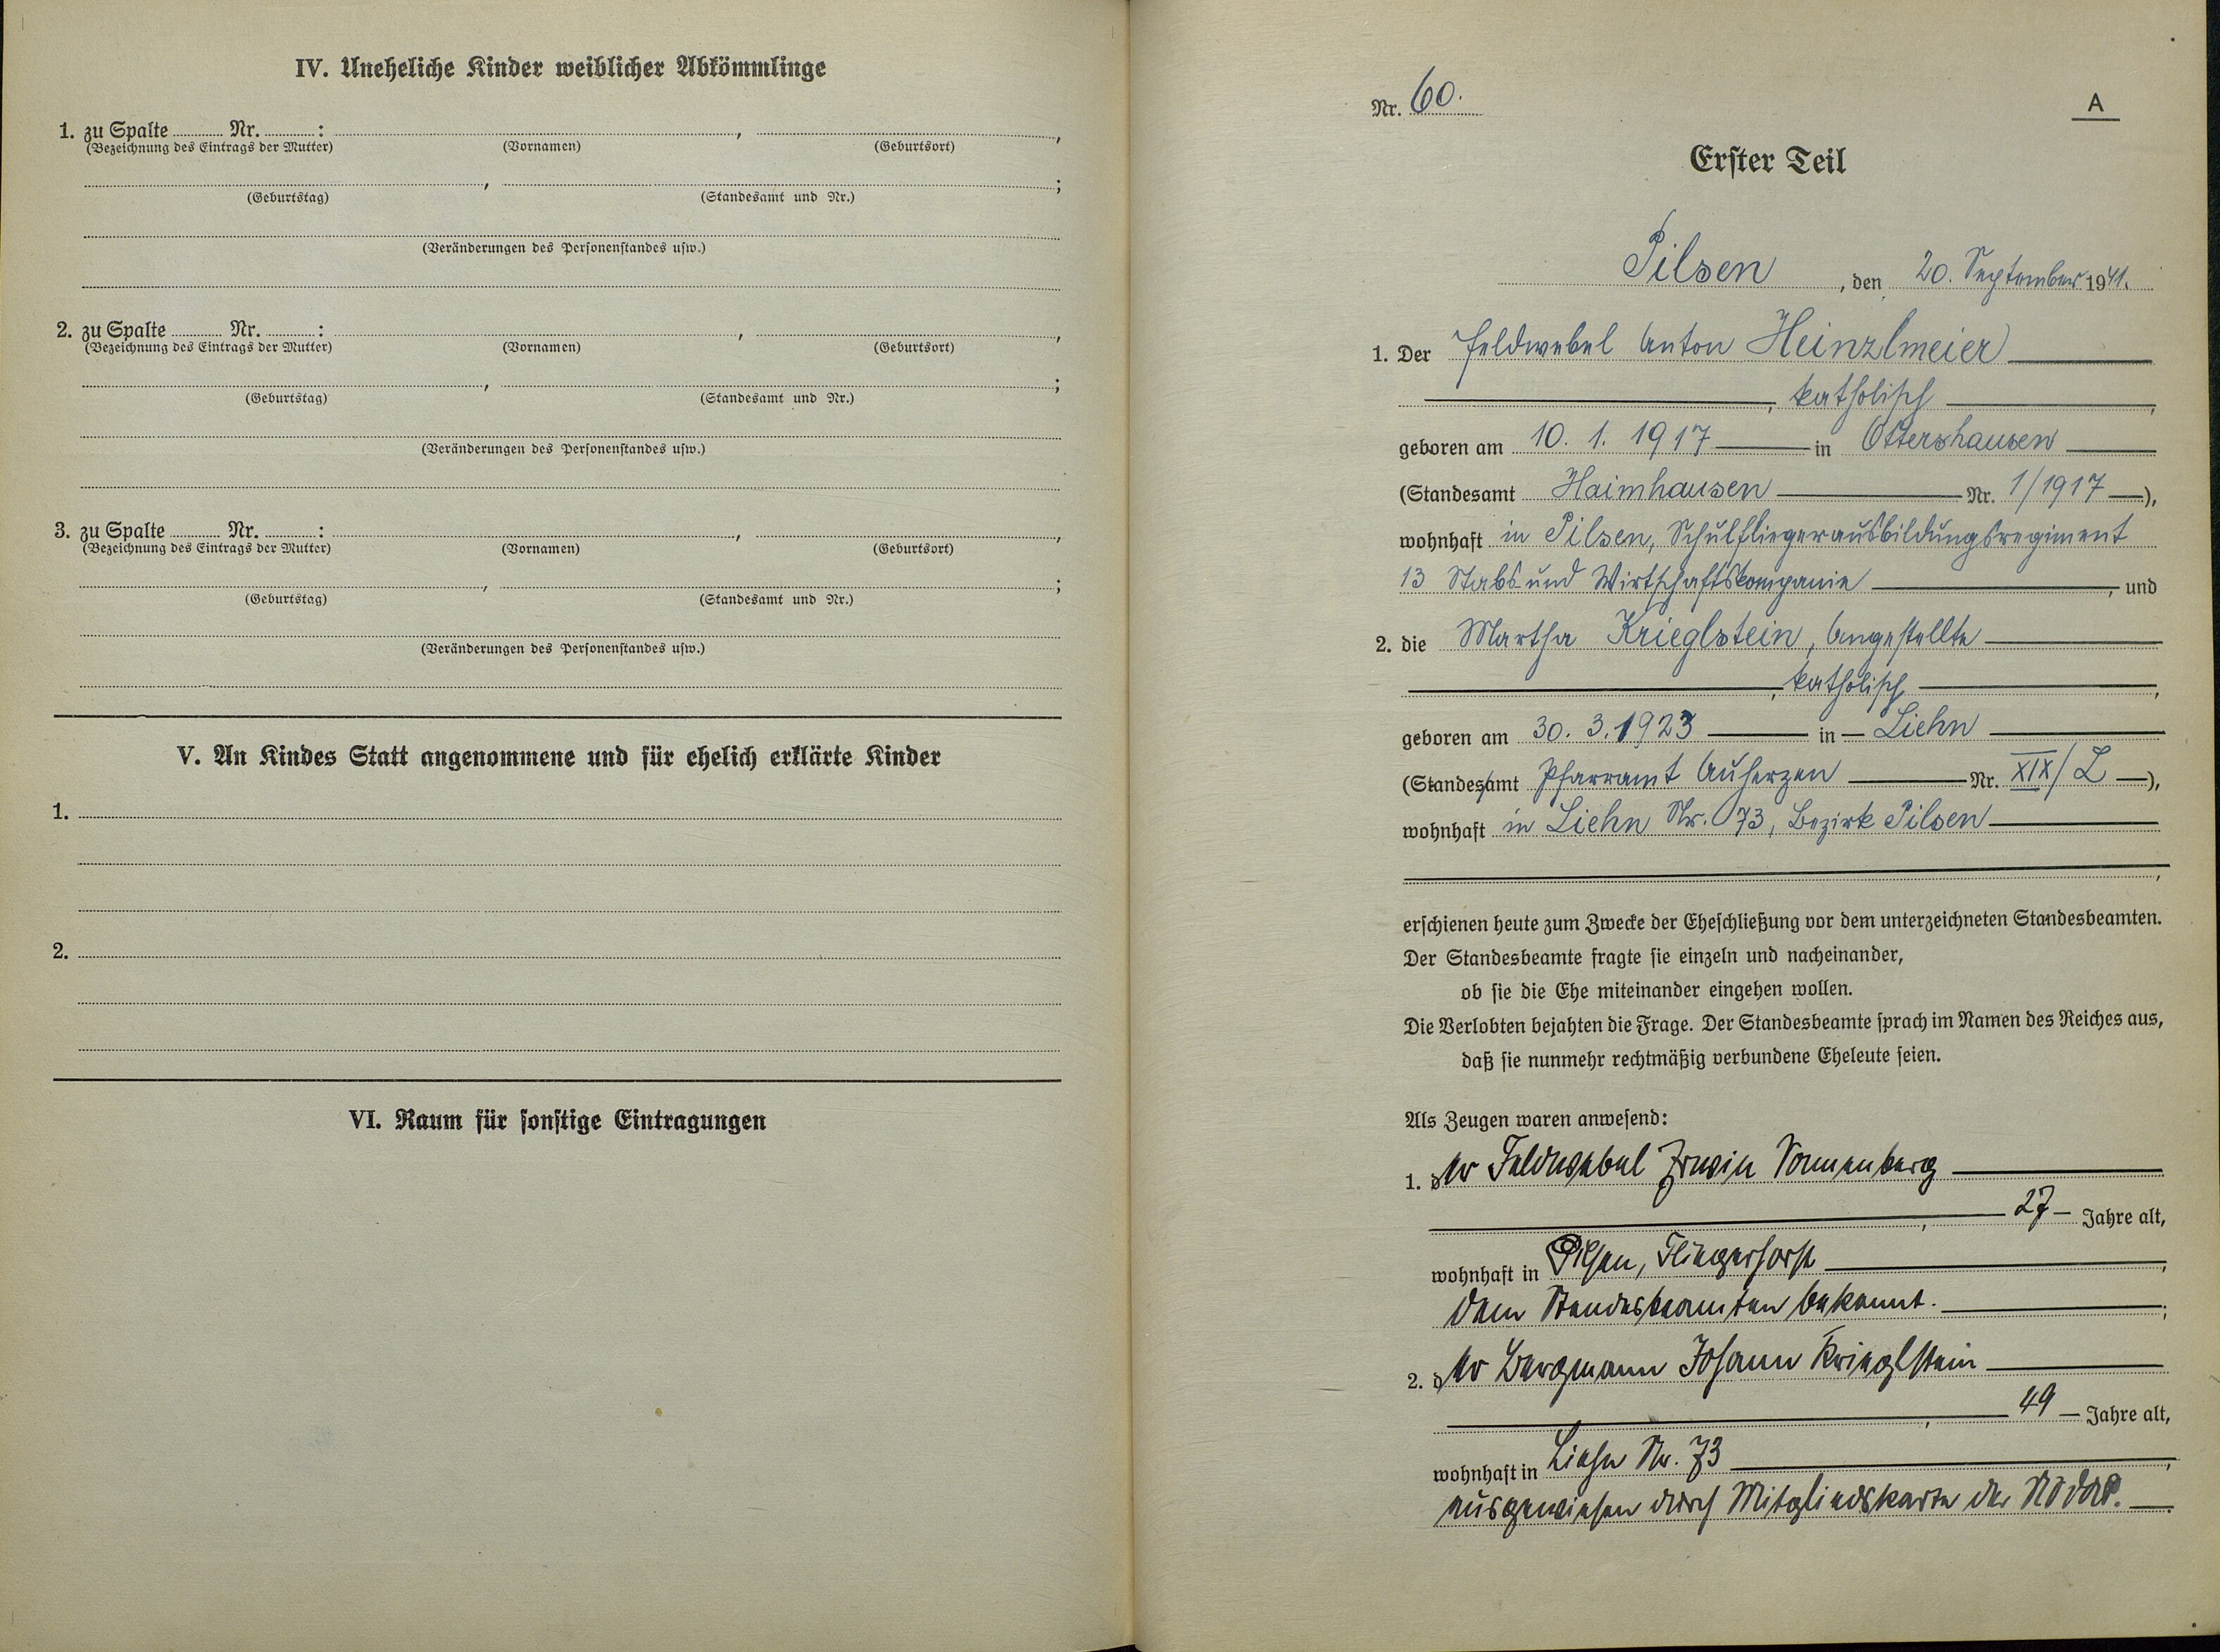 IV. Uneheliche Kinder weiblicher Abkömmlinge
1. zu Spalte Nr. : , ,
(Bezeichnung des Eintrags der Mutter) (Vornamen) (Geburtsort)
, ;
(Geburtstag) (Standesamt und Nr.)
(Veränderungen des Personenstandes usw.)
2. zu Spalte Nr. : , ,
(Bezeichnung des Eintrags der Mutter) (Vornamen) (Geburtsort)
, ;
(Geburtstag) (Standesamt und Nr.)
(Veränderungen des Personenstandes usw.)
3. zu Spalte Nr. : , ,
(Bezeichnung des Eintrags der Mutter) (Vornamen) (Geburtsort)
, ;
(Geburtstag) (Standesamt und Nr.)
(Veränderungen des Personenstandes usw.)
V. An Kindes Statt angenommene und für ehelich erklärte Kinder
1.
2.
VI. Raum für sonstige Eintragungen
Nr. 60.
A
Erster Teil
Pilsen, den 20. September 1941.
1. Der Feldwebel Anton Heinzlmeier
, katholisch,
geboren am 10. 1. 1917 in Ottershausen
(Standesamt Haimhausen Nr. 1/1917),
wohnhaft in Pilsen, Schulfliegerausbildungsregiment
13 Stabs und Wirtschaftskompanie, und
2. die Martha Krieglstein, Angestellte
, katholisch,
geboren am 30. 3. 1923 in Liehn
(Standesamt Pfarramt Auherzen Nr. XIX/L),
wohnhaft in Liehn Nr. 73, Bezirk Pilsen
,
erschienen heute zum Zwecke der Eheschließung vor dem unterzeichneten Standesbeamten.
Der Standesbeamte fragte sie einzeln und nacheinander,
ob sie die Ehe miteinander eingehen wollen.
Die Verlobten bejahten die Frage. Der Standesbeamte sprach im Namen des Reiches aus,
daß sie nunmehr rechtmäßig verbundene Eheleute seien.
Als Zeugen waren anwesend:
1. der Feldwebel Erwin Sonnenberg
, 27 Jahre alt,
wohnhaft in Pilsen, Fliegerhorst,
dem Standesbeamten bekannt. ;
2. der Bergmann Johann Krieglstein
, 49 Jahre alt,
wohnhaft in Liehn Nr. 73,
ausgewiesen durch Mitgliedskarte der NSDAP.